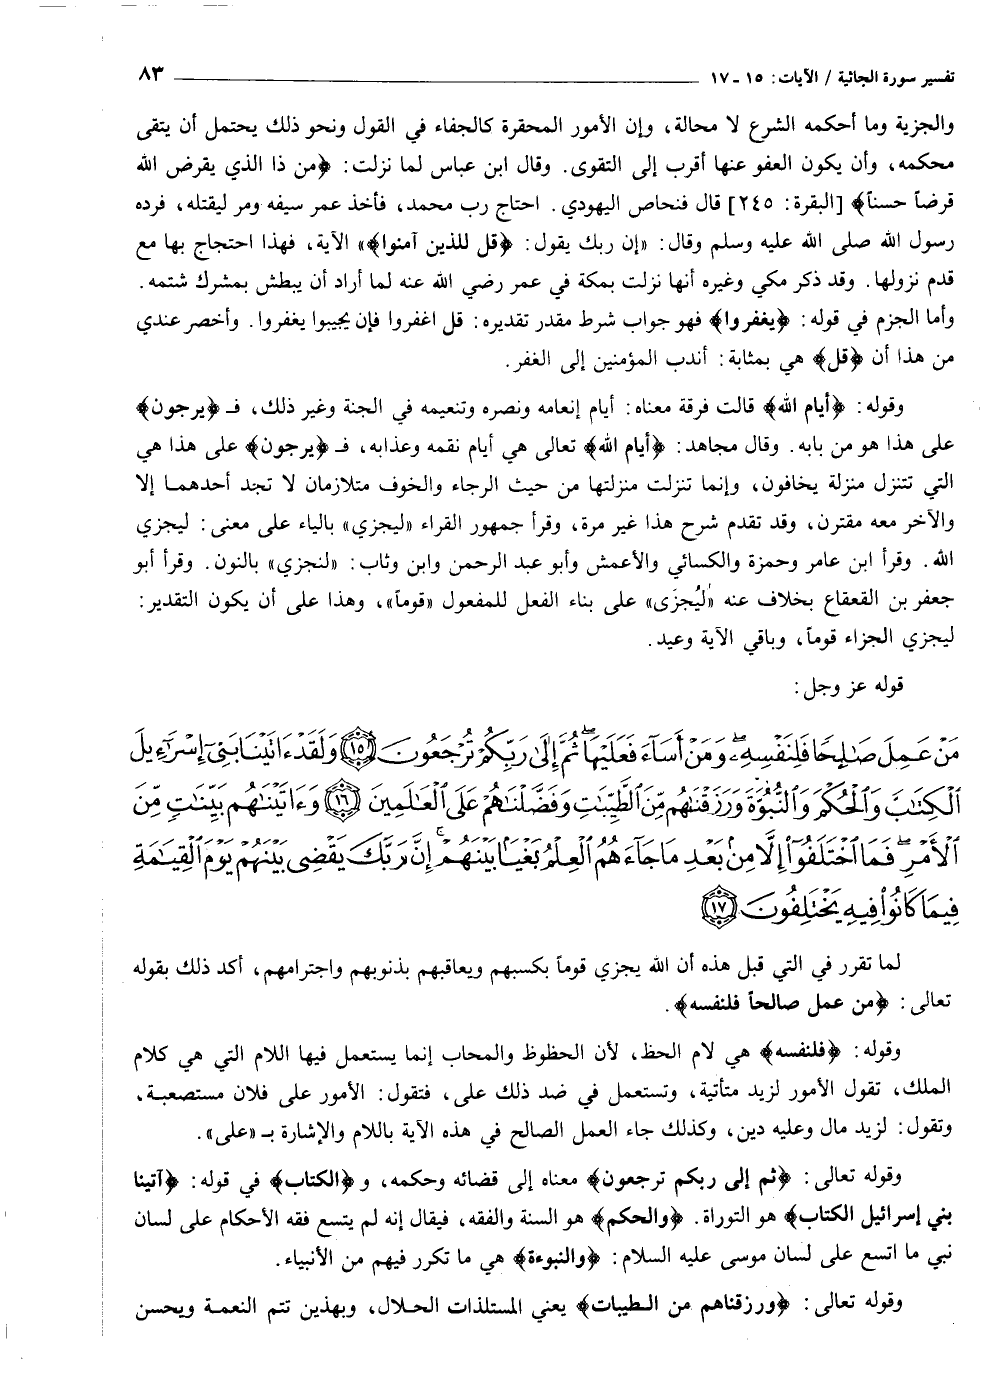 تفسير سورة الجاثية / الآيات: ١٥ - ١٧ ٨٣
والجزية وما أحكمه الشرع لا محالة، وإن الأمور المحقرة كالجفاء في القول ونحو ذلك يحتمل أن يتقى
محكمه، وأن يكون العفو عنها أقرب إلى التقوى. وقال ابن عباس لما نزلت: ﴿من ذا الذي يقرض الله
قرضاً حسناً﴾ [البقرة: ٢٤٥] قال فنحاص اليهودي. احتاج رب محمد، فأخذ عمر سيفه ومر ليقتله، فرده
رسول الله صلى الله عليه وسلم وقال: «إن ربك يقول: ﴿قل للذين آمنوا﴾» الآية، فهذا احتجاج بها مع
قدم نزولها. وقد ذكر مكي وغيره أنها نزلت بمكة في عمر رضي الله عنه لما أراد أن يبطش بمشرك شتمه.
وأما الجزم في قوله: ﴿يغفروا﴾ فهو جواب شرط مقدر تقديره: قل اغفروا فإن يجيبوا يغفروا. وأخصر عندي
من هذا أن ﴿قل﴾ هي بمثابة: أندب المؤمنين إلى الغفر.
وقوله: ﴿أيام الله﴾ قالت فرقة معناه: أيام إنعامه ونصره وتنعيمه في الجنة وغير ذلك، فـ ﴿يرجون﴾
على هذا هو من بابه. وقال مجاهد: ﴿أيام الله﴾ تعالى هي أيام نقمه وعذابه، فـ ﴿يرجون﴾ على هذا هي
التي تتنزل منزلة يخافون، وإنما تنزلت منزلتها من حيث الرجاء والخوف متلازمان لا تجد أحدهما إلا
والآخر معه مقترن، وقد تقدم شرح هذا غير مرة، وقرأ جمهور القراء «ليجزي» بالياء على معنى: ليجزي
الله. وقرأ ابن عامر وحمزة والكسائي والأعمش وأبو عبد الرحمن وابن وثاب: «لنجزي» بالنون. وقرأ أبو
جعفر بن القعقاع بخلاف عنه «ليُجزَى» على بناء الفعل للمفعول «قوماً»، وهذا على أن يكون التقدير:
ليجزي الجزاء قوماً، وباقي الآية وعيد.
قوله عز وجل:
مَنْ عَمِلَ صَالِحًا فَلِنَفْسِهِۦ وَمَنْ أَسَآءَ فَعَلَيْهَا ثُمَّ إِلَىٰ رَبِّكُمْ تُرْجَعُونَ ﴿١٥﴾ وَلَقَدْ ءَاتَيْنَا بَنِىٓ إِسْرَٰٓءِيلَ
ٱلْكِتَٰبَ وَٱلْحُكْمَ وَٱلنُّبُوَّةَ وَرَزَقْنَٰهُم مِّنَ ٱلطَّيِّبَٰتِ وَفَضَّلْنَٰهُمْ عَلَى ٱلْعَٰلَمِينَ ﴿١٦﴾ وَءَاتَيْنَٰهُم بَيِّنَٰتٍ مِّنَ
ٱلْأَمْرِ فَمَا ٱخْتَلَفُوٓا۟ إِلَّا مِنۢ بَعْدِ مَا جَآءَهُمُ ٱلْعِلْمُ بَغْيًۢا بَيْنَهُمْ إِنَّ رَبَّكَ يَقْضِى بَيْنَهُمْ يَوْمَ ٱلْقِيَٰمَةِ
فِيمَا كَانُوا۟ فِيهِ يَخْتَلِفُونَ ﴿١٧﴾
لما تقرر في التي قبل هذه أن الله يجزي قوماً بكسبهم ويعاقبهم بذنوبهم واجترامهم، أكد ذلك بقوله
تعالى: ﴿من عمل صالحاً فلنفسه﴾.
وقوله: ﴿فلنفسه﴾ هي لام الحظ، لأن الحظوظ والمحاب إنما يستعمل فيها اللام التي هي كلام
الملك، تقول الأمور لزيد متأتية، وتستعمل في ضد ذلك على، فتقول: الأمور على فلان مستصعبة،
وتقول: لزيد مال وعليه دين، وكذلك جاء العمل الصالح في هذه الآية باللام والإشارة بـ «على».
وقوله تعالى: ﴿ثم إلى ربكم ترجعون﴾ معناه إلى قضائه وحكمه، و ﴿الكتاب﴾ في قوله: ﴿آتينا
بني إسرائيل الكتاب﴾ هو التوراة. ﴿والحكم﴾ هو السنة والفقه، فيقال إنه لم يتسع فقه الأحكام على لسان
نبي ما اتسع على لسان موسى عليه السلام: ﴿والنبوءة﴾ هي ما تكرر فيهم من الأنبياء.
وقوله تعالى: ﴿ورزقناهم من الطيبات﴾ يعني المستلذات الحلال، وبهذين تتم النعمة ويحسن